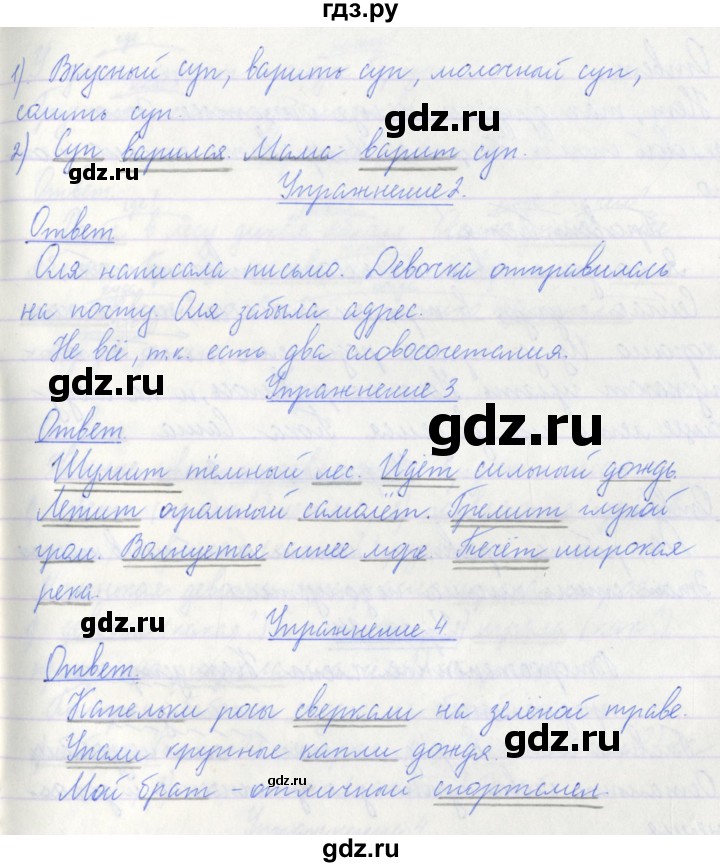 гдз.ру
1) Вкусный суп, варить суп, молочный суп,
солить суп.
gdz.ru
2) Суп варился. Мама варит суп.
gdz.ru
Упражнение 2.
Ответ
Оля написала письмо. Девочка отправилась
на почту. Оля забыла адрес.
Не всё, т.к. есть два словосочетания.
gdz.ru
Упражнение 3
gdz.ru
Ответ
Шумит тёмный лес. Идёт сильный дождь.
Летит огромный самолёт. Гремит глухой
гром. Волнуется синее море. Течёт широкая
река.
gdz.ru
Упражнение 4.
Ответ.
Капельки росы сверкали на зелёной траве.
Упали крупные капли дождя.
gdz.ru
gdz.ru
Мой брат - отличный спортсмен.
gdz.ru